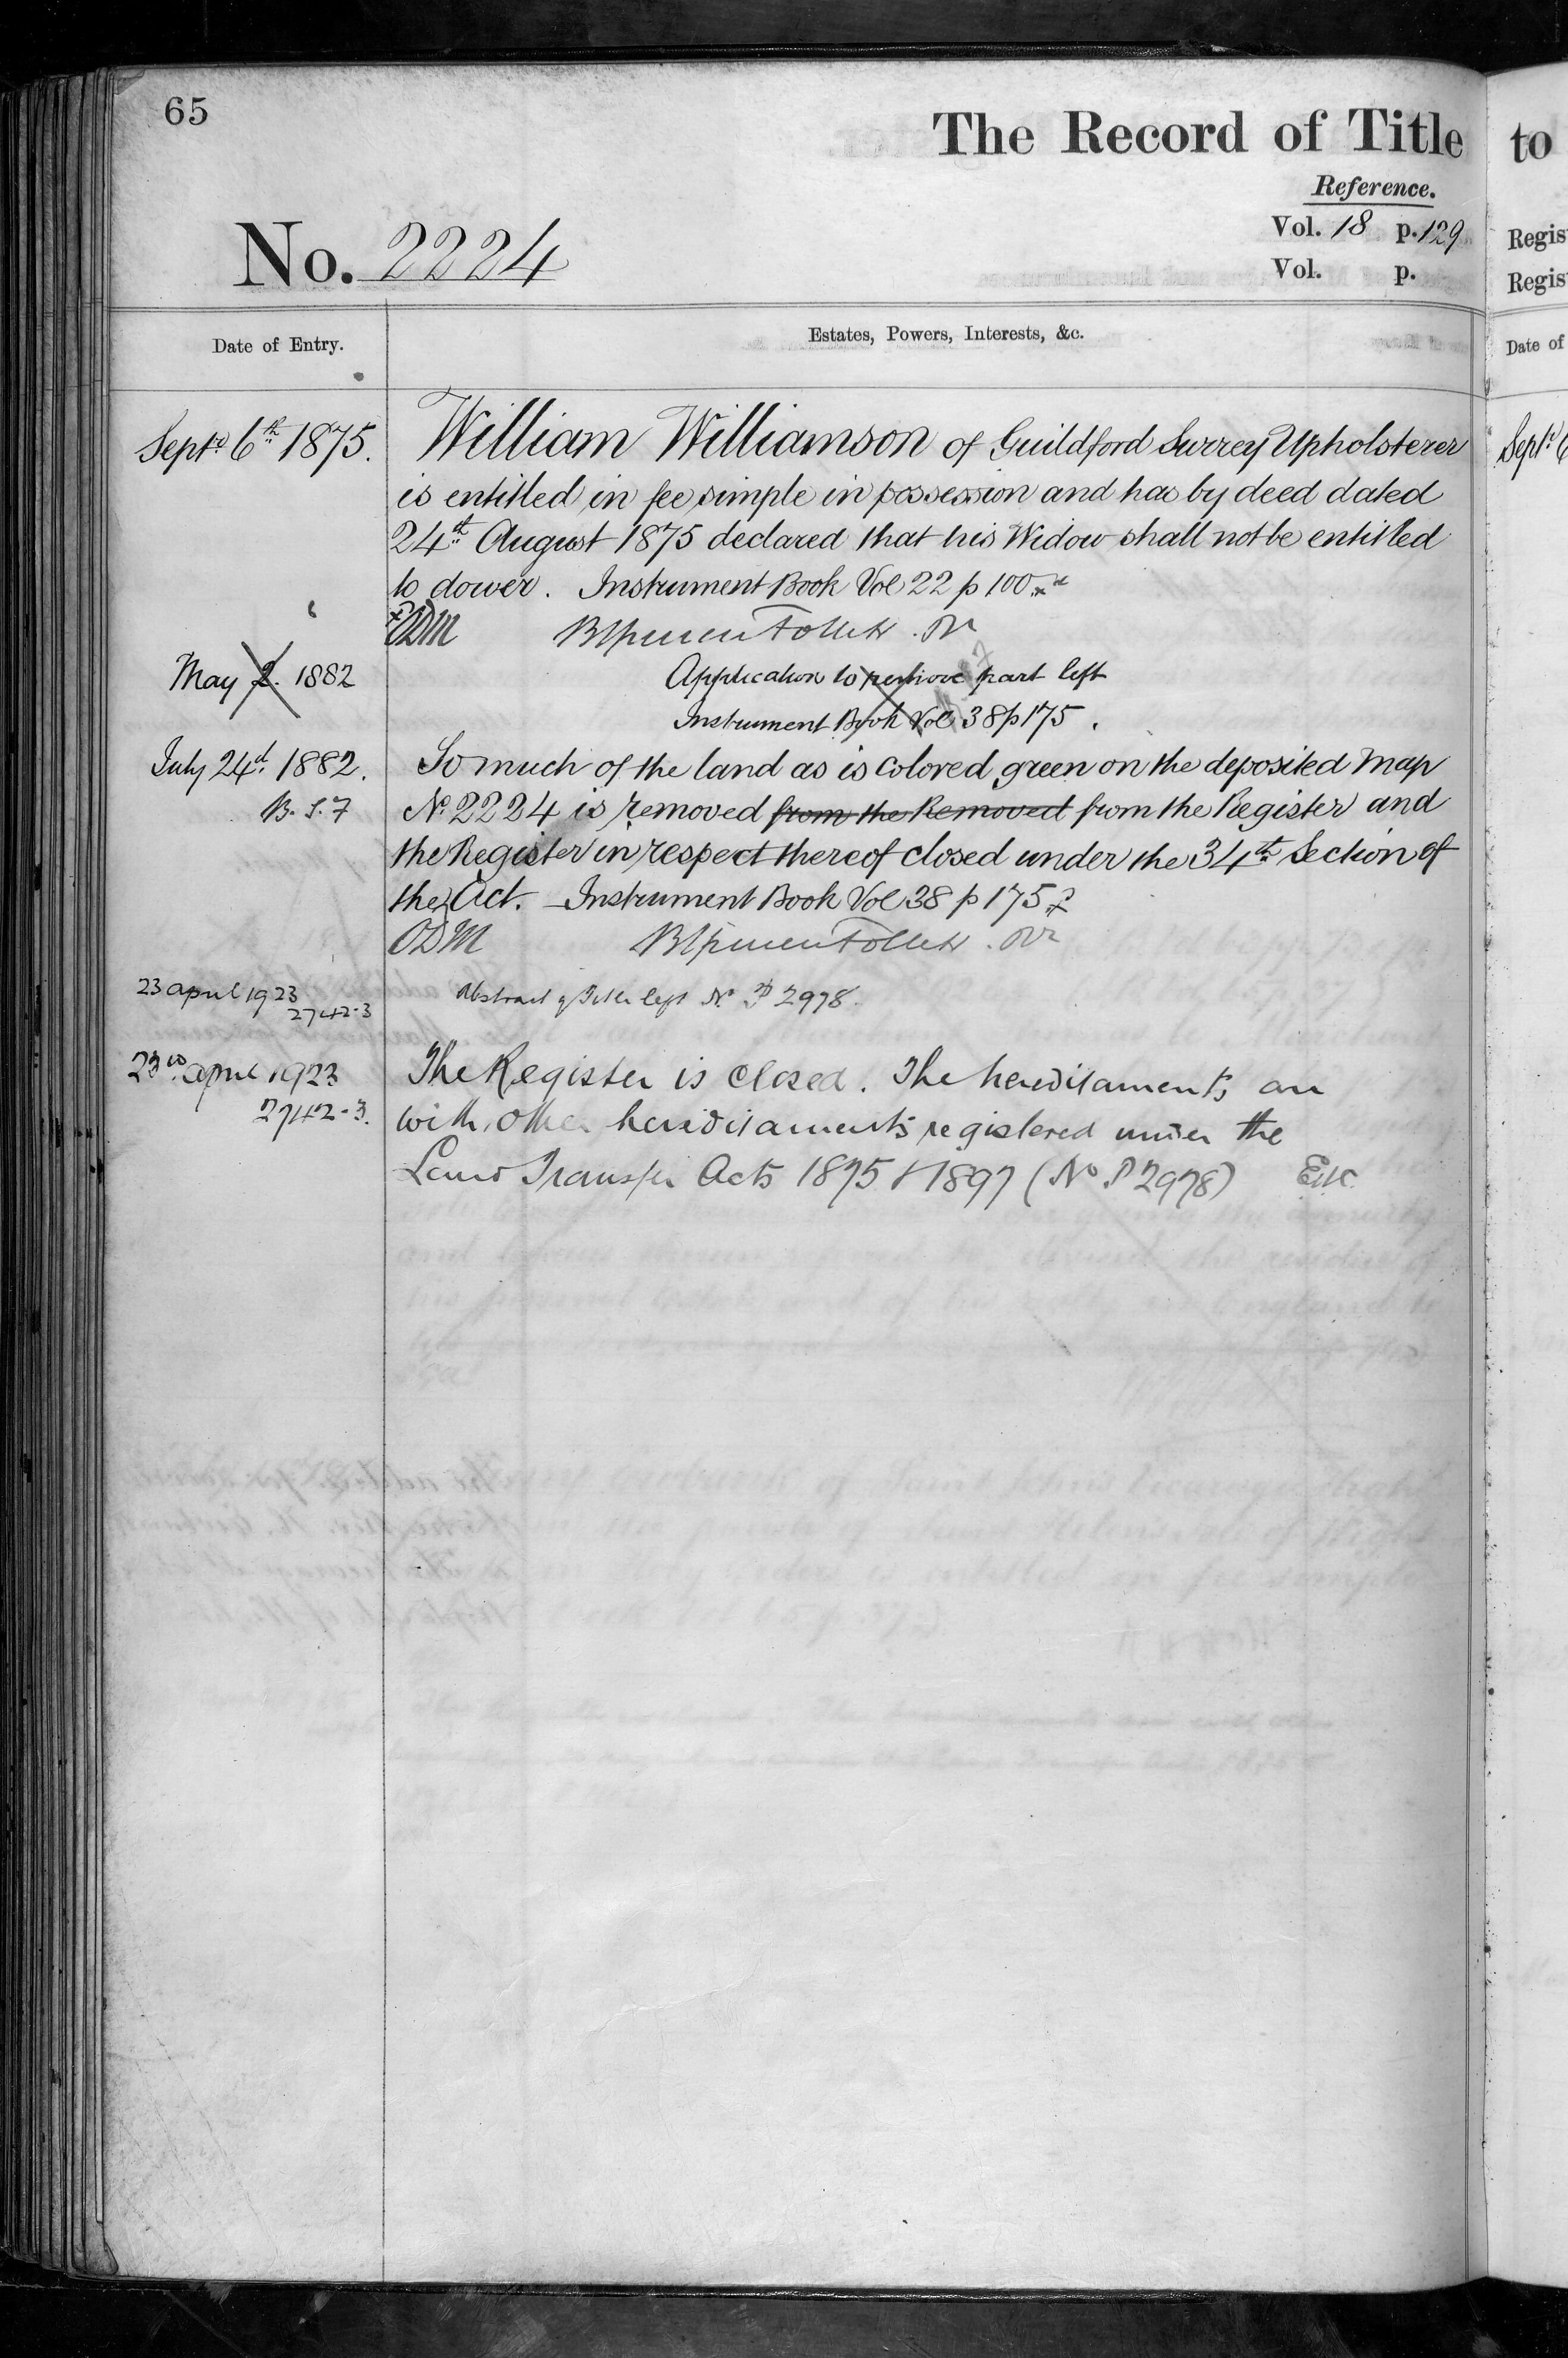 65
The Record of Title
to
Reference.
Vol. 18 p. 129
Regis
No. 2224
Vol. p.
Regis
Date of Entry.
Estates, Powers, Interests, &c.
Date of
Sept. 6th 1875.
William Williamson of Guildford Surrey Upholsterer
Sept. 6
is entitled in fee simple in possession and has by deed dated
24th August 1875 declared that his Widow shall not be entitled
to dower. Instrument Book Vol 22 p 100
ODM
May 2. 1882
Application to remove part left
Instrument Book Vol 38 p 175.
July 24th 1882.
So much of the land as is colored green on the deposited Map
B. S. 7
No. 2224 is removed from the Removed from the Register and
the Register in respect thereof closed under the 34th Section of
the Act. Instrument Book Vol 38 p 175
ODM
23 april 1923
2742-3
Abstract of Title left No. P 2978.
23rd april 1923
The Register is closed. The hereditaments are
2742-3.
with other hereditaments registered under the
Land Transfer Acts 1875 & 1897 (No P 2978)